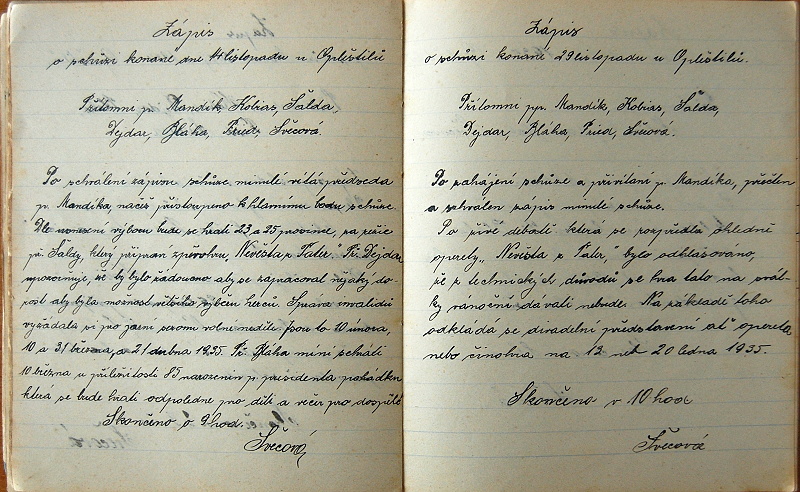 Zápis
o schůzi konané dne 14 listopadu u Oplěštilů
Přítomni p. Mandík, Kobias, Šalda,
Dejdar, Bláha, Fried, Švecová.
Po schválení zápisu schůze minulé vítá předseda
p. Mandíka, načež přistoupeno k hlavnímu bodu schůze.
Dle usnesení výboru bude se hráti 23 a 25 prosince, za režie
př. Šaldy, který připraví zpěvohru, Nevěsta z Tater." Př. Dejdar
upozorňuje, že by bylo žádoucno aby se zapracoval nějaký do-
rost aby byla možnost většího výběru herců. Správa invalidů
vyžádala si pro jarní sezonu volné neděle. Jsou to 10 února,
10 a 31 března, a 21 dubna 1935. Př. Bláha míní sehráti
10 března u příležitosti 85 narozenin p. presidenta pohádku
která se bude hráti odpoledne pro děti a večer pro dospělé
Skončeno o 9 hod.
Švecová
Zápis
o schůzi konané 29 listopadu u Oplěštilů.
Přítomni pp. Mandík, Kobias, Šalda,
Dejdar, Bláha, Fried, Švecová.
Po zahájení schůze a přivítání p. Mandíka, přečten
a schválen zápis minulé schůze.
Po živé debatě která se rozpředla ohledně
operety „Nevěsta z Tater," bylo odhlasováno,
že z technických důvodů se hra tato na svát-
ky vánoční dávati nebude. Na základě toho
odkládá se divadelní představení ať opereta
nebo činohra na 13 neb 20 ledna 1935.
Skončeno v 10 hod
Švecová